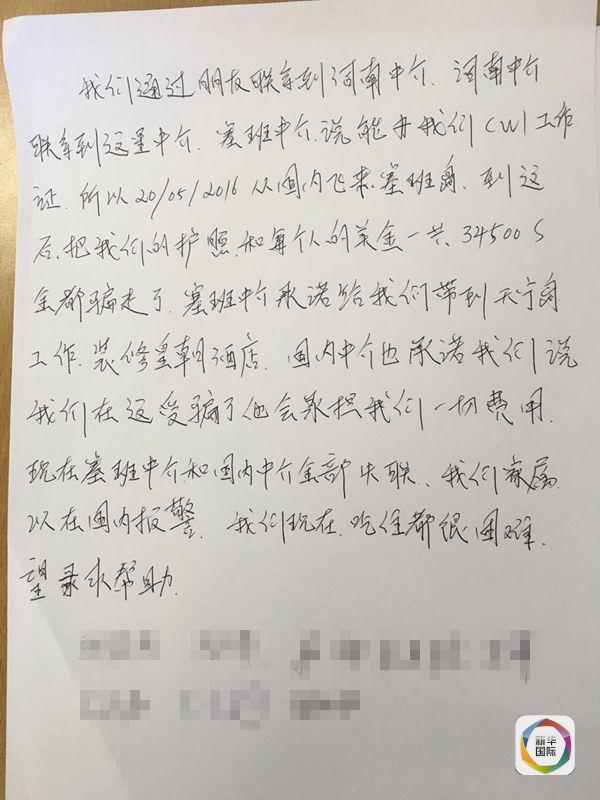 我们通过朋友联系到河南中介.河南中介
联系到这里中介.塞班中介.说能办我们CW1工作
证.所以20/05/2016从国内飞来塞班岛.到这
后.把我们的护照.和每个人的美金一共.34500$
全都骗走了.塞班中介承诺给我们带到天宁岛
工作.装修皇朝酒店.国内中介也承诺我们说
我们在这受骗了他会承担我们一切费用.
现在塞班中介和国内中介全部失联.我们家属
以在国内报警.我们现在.吃住都很困难.
望录求帮助.
新华
国际